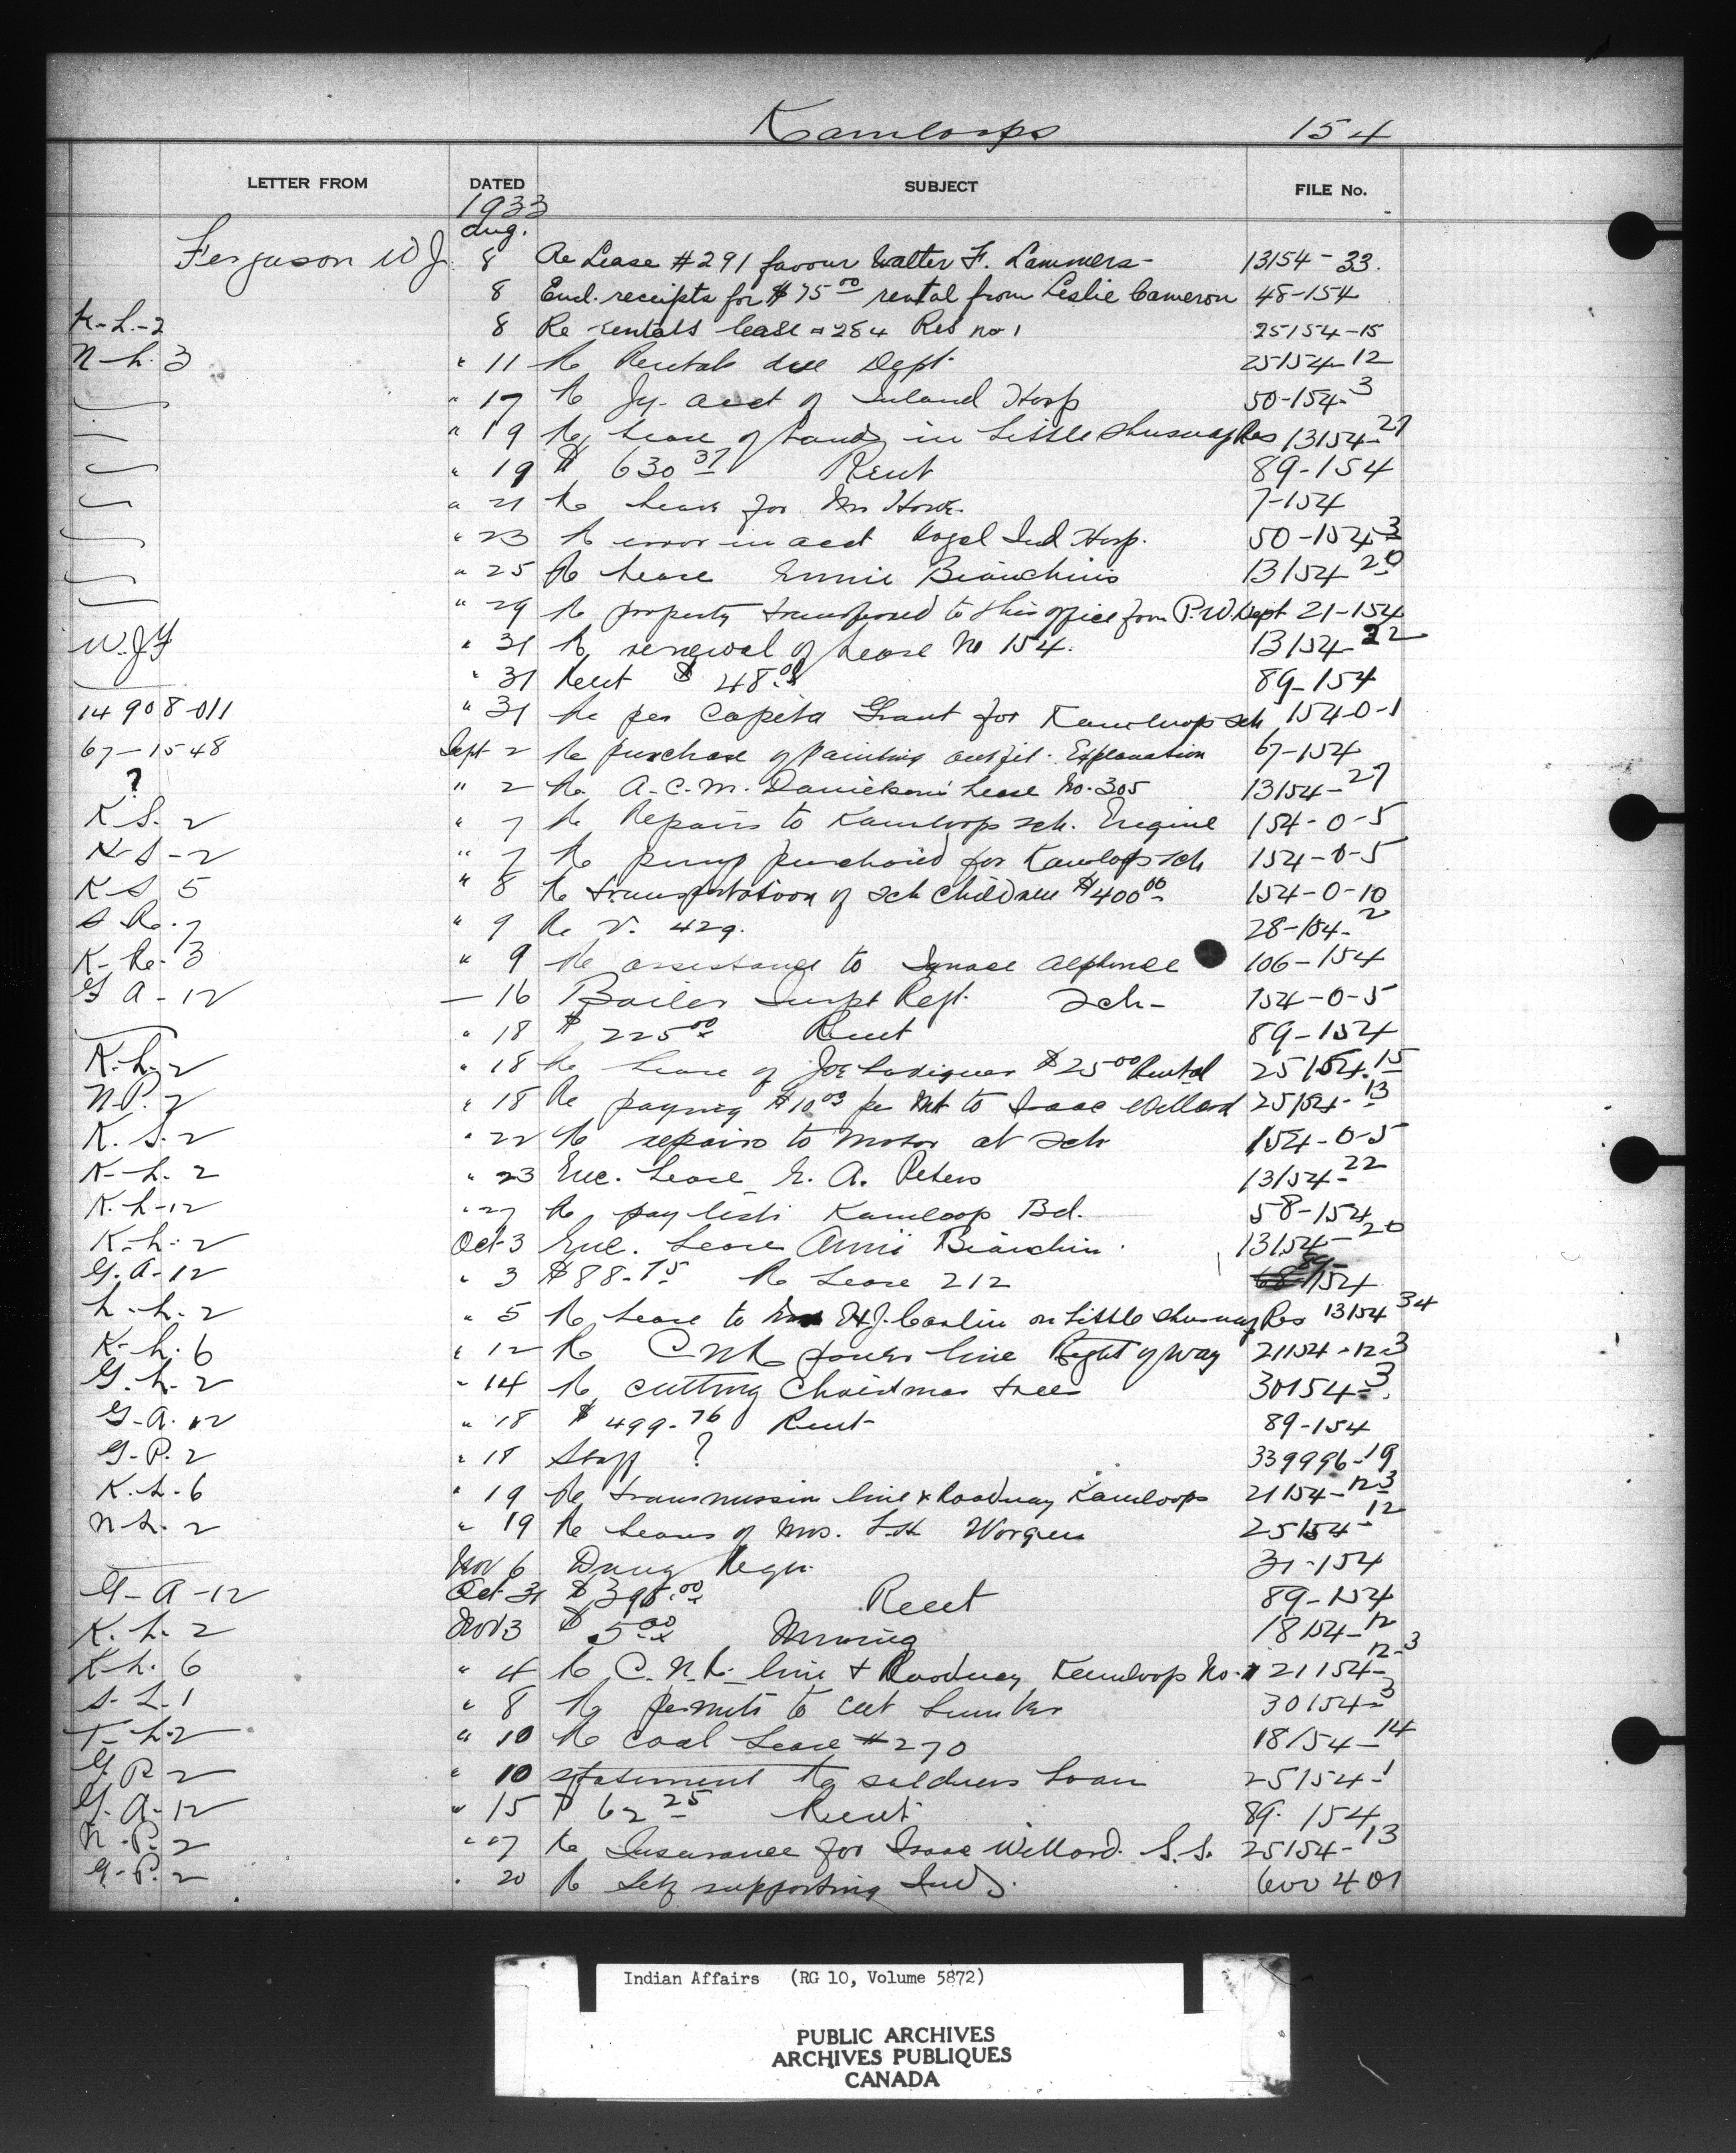 Kamloops 154
LETTER FROM DATED SUBJECT FILE No.
1933
Aug.
Ferguson W J 8 Re Lease #291 favour Walter F. Lammers- 13154-33.
8 Encl. receipts for $75 00 rental from Leslie Cameron 48-154
K-L-2 8 Re rentals lease 284 Res no 1 25154-15
N-L. 3 " 11 Re Rentals due Dept. 25154-12
" 17 Re Jy. acct of Inland Hosp 50-154-3
" 19 Re Lease of Lands in Little Shuswap Res 13154-27
" 19 $ 630 37 Rent 89-154
" 21 Re Lease for 7-154
" 23 Re error in acct Royal Ind Hosp. 50-154-3
" 25 Re Lease Bianchini 13154-20
" 29 Re property transferred to this office from P.W. Dept 21-154
W.J.F " 31 Re renewal of Lease No 154. 13154-22
" 31 Rent $ 48.00 89-154
14908-011 " 31 Re per Capita Grant for Kamloops sch 154-0-1
67-1548 Sept 2 Re purchase of painting outfit. Explanation 67-154
? " 2 Re A.C.M. Lease No. 305 13154-27
K S. 2 " 7 Re Repairs to Kamloops sch. Engine 154-0-5
K-S-2 " 7 Re pump purchased for Kamloops sch 154-0-5
K S 5 " 8 Re transportation of sch children $400 00 154-0-10
S Re. 7 " 9 Re V. 429. 28-154-2
K-Re-3 " 9 Re assistance to Ignace Alphonse 106-154
G A-12 - 16 Boiler Inspt Rept. Sch- 154-0-5
" 18 $ 225 00 Rent 89-154
K.L. 2 " 18 Re Lease of Joe $25 00 Rental 25154-15
N.P. 2 " 18 Re paying $10 00 per Mt to Isaac Willard 25154-13
K. S. 2 " 22 Re repairs to motor at sch 154-0-5
K-L. 2 " 23 Enc. Lease E. A. Peters 13154-22
K.L-12 " 27 Re pay lists Kamloop Bd. 58-154
K-L-2 Oct-3 Enc. Lease Annie Bianchini. 13154-20
G.A-12 " 3 $88-75 Re Lease 212 89-154
L-L. 2 " 5 Re Lease to H.J. Carlin on Little Shuswap Res 13154-34
K-L. 6 " 12 Re CNR power line Right of way 21154-12-3
G.L-2 " 14 Re cutting Christmas trees 30154-3
G-A. 12 " 18 $ 499-76 Rent 89-154
G-P. 2 " 18 Staff ? 339996-19
K.L-6 " 19 Re transmission line & Roadway Kamloops 21154-12-3
N-L. 2 " 19 Re Leases of Mrs. 25154-12
Nov 6 Drug Reqn. 31-154
G-A-12 Oct-31 $ 00 Rent 89-154
K. L. 2 Nov 3 $ 5 00 Mining 18154-12
K-L. 6 " 4 Re C.N.R. line & Roadway Kamloop No. 1 21154-12-3
S-L. 1 " 8 Re permits to cut Lumber 30154-3
T-L-2 " 10 Re coal Lease #270 18154-14
G P 2 " 10 statement Re soldiers Loan 25154-1
G-A-12 " 15 $ 62 25 Rent 89-154
N.P. 2 " 17 Re Insurance for Isaac Willard. S.S. 25154-13
G-P. 2 " 20 Re self supporting Inds. 600401
Indian Affairs (RG 10, Volume 5872)
PUBLIC ARCHIVES
ARCHIVES PUBLIQUES
CANADA